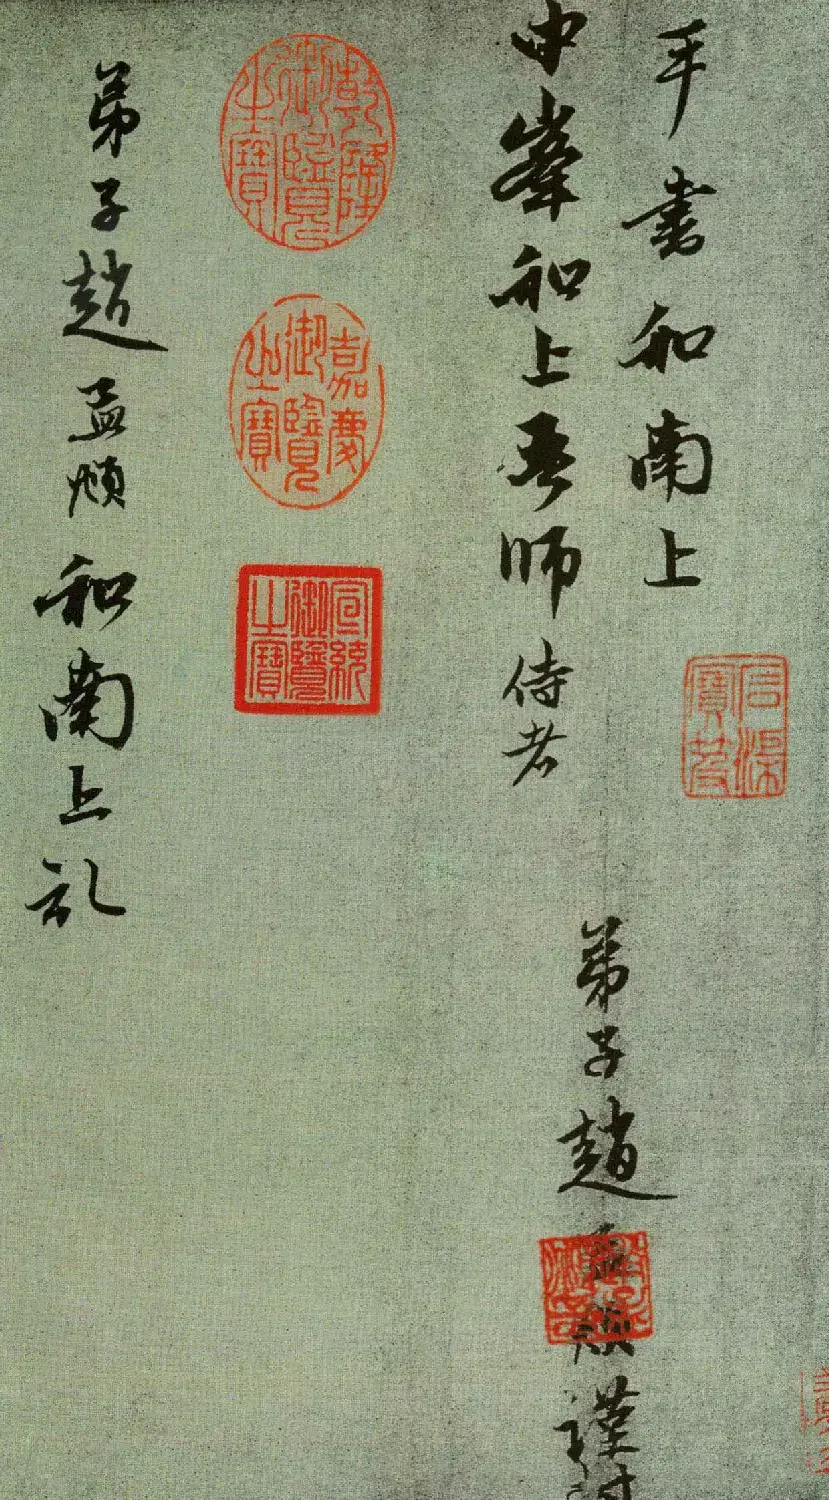 手書和南上
石渠寶笈
中峯和上吾師侍者
弟子趙孟頫謹封
乾隆御覽之寶
嘉慶御覽之寶
宣統御覽之寶
弟子趙孟頫和南上記